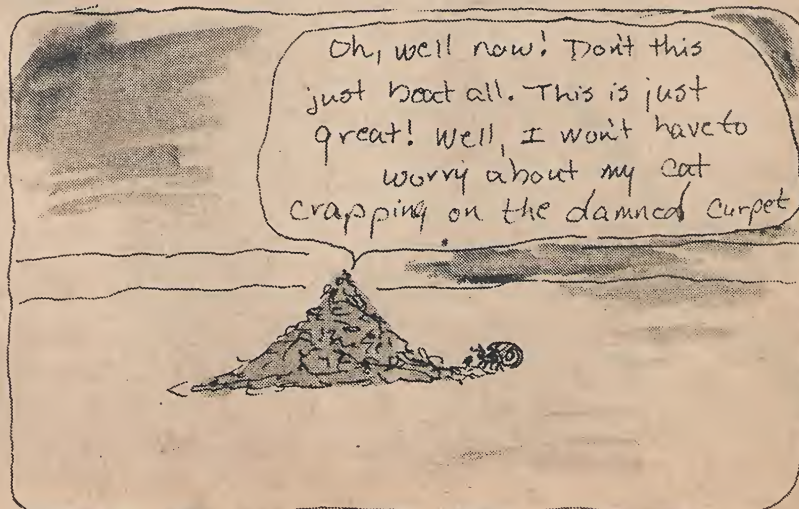 Oh, well now! Don't this
just beat all. This is just
great! Well, I won't have to
worry about my cat
crapping on the damned carpet